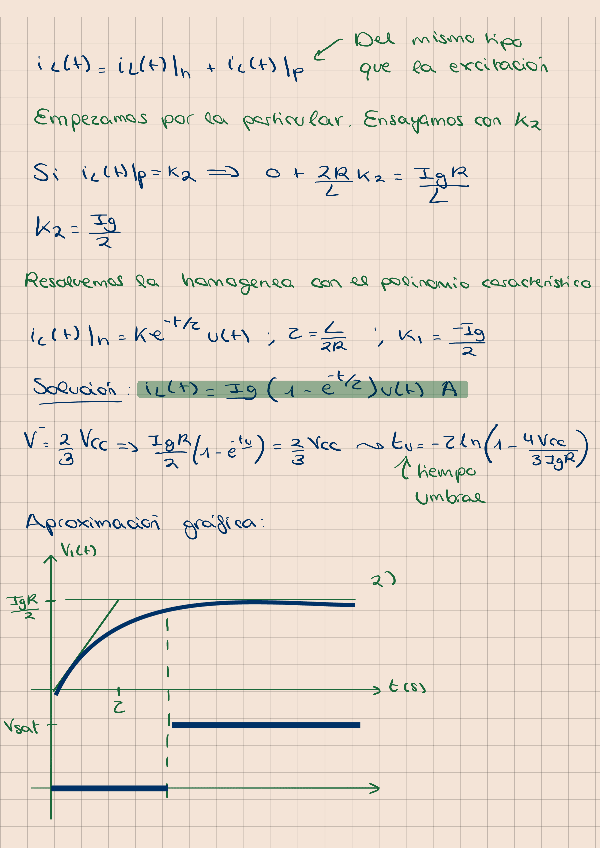 Del mismo tipo
iL(t) = iL(t)|h + iL(t)|p
que la excitación
Empezamos por la particular. Ensayamos con K2
Si iL(t)|p = K2 => 0 + 2R/L K2 = IgR/L
K2 = Ig/2
Resolvemos la homogenea con el polinomio característico
iL(t)|h = K e^-t/τ u(t) ; τ = L/2R ; K1 = -Ig/2
Solución: iL(t) = Ig (1 - e^-t/τ) u(t) A
V^- = 2/3 Vcc => IgR/2 (1 - e^-tu) = 2/3 Vcc ~> tu = -τ ln(1 - 4Vcc/3IgR)
↑ tiempo
umbral
Aproximación gráfica:
V1(t)
2)
IgR/2
t(s)
τ
Vsat